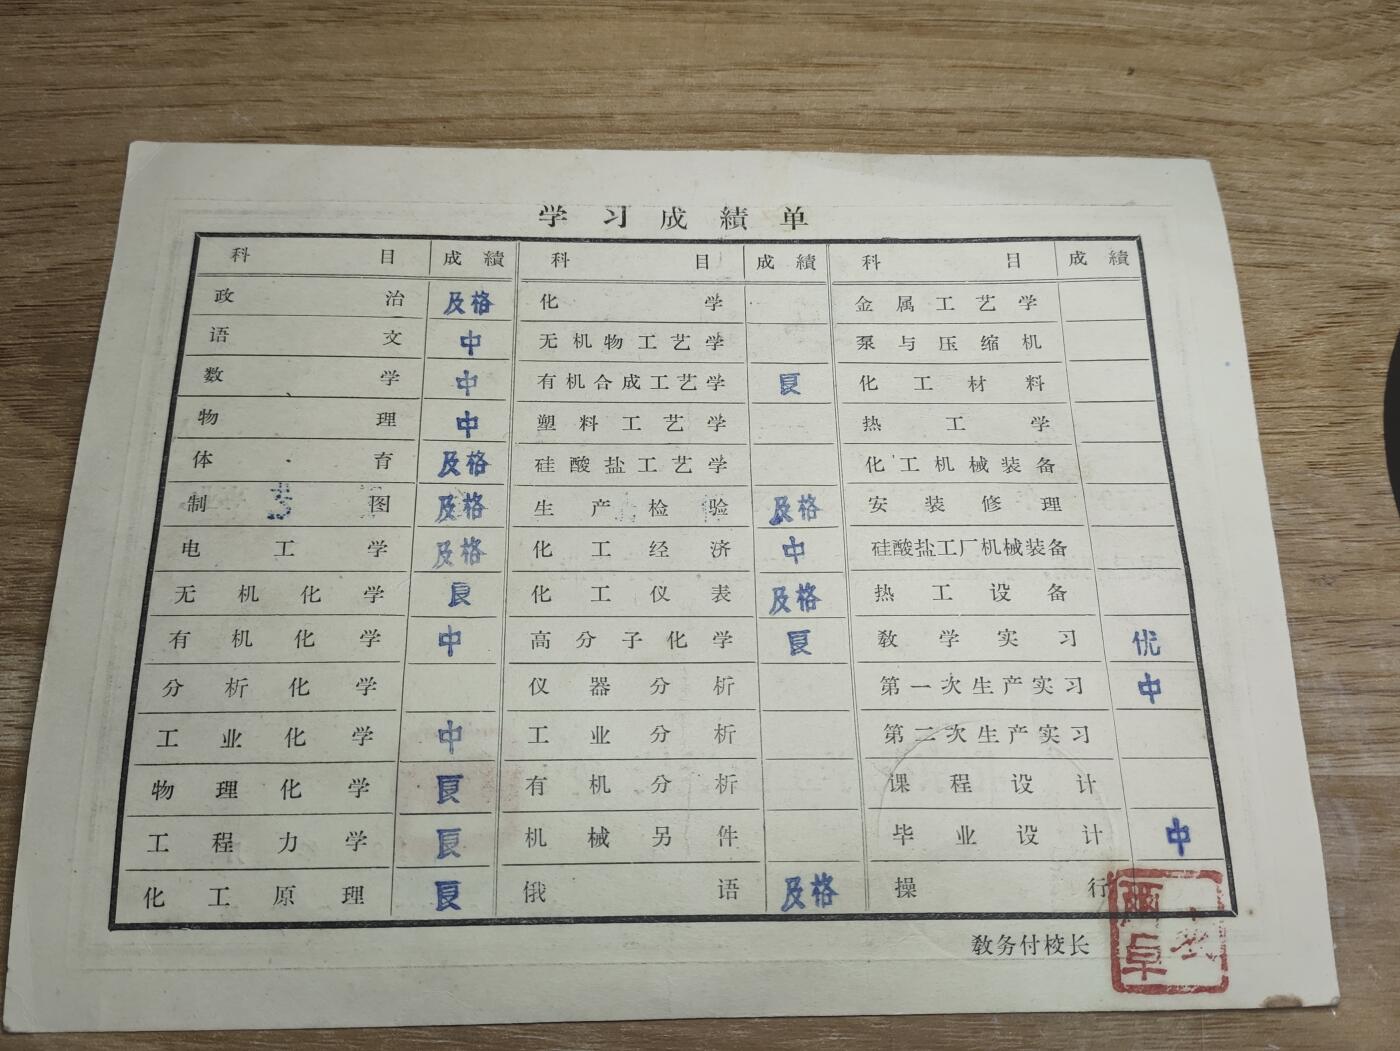 学习成績单
科目 成績 科目 成績 科目 成績
政治 及格 化学 金属工艺学
语文 中 无机物工艺学 泵与压缩机
数学 中 有机合成工艺学 良 化工材料
物理 中 塑料工艺学 热工学
体育 及格 硅酸盐工艺学 化工机械装备
制图 及格 生产检验 及格 安装修理
电工学 及格 化工经济 中 硅酸盐工厂机械装备
无机化学 良 化工仪表 及格 热工设备
有机化学 中 高分子化学 良 教学实习 优
分析化学 仪器分析 第一次生产实习 中
工业化学 中 工业分析 第二次生产实习
物理化学 良 有机分析 课程设计
工程力学 良 机械另件 毕业设计 中
化工原理 良 俄语 及格 操行
教务付校长